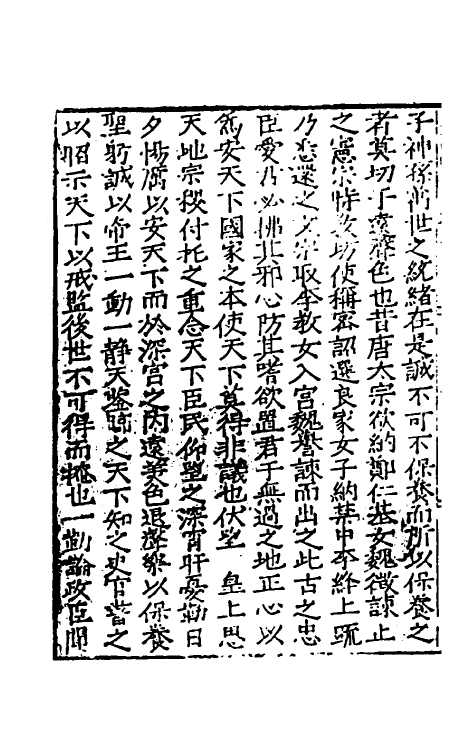 子神孫萬世之統緒在是誠不可不保養而所以保養之
者莫切于遠聲色也昔唐太宗欲納鄭仁基女魏徵諫止
之憲宗時教坊使稱密詔選良家女子納禁中李絳上疏
乃悉還之文宗取李孝女入宮魏謩諫而出之此古之忠
臣愛乃必拂其邪心防其嗜欲置君于無過之地正心以
為安天下國家之本使天下莫得非議也伏望 皇上思
天地宗稷付托之重念天下臣民仰望之深宵旰憂勤日
夕惕厲以安天下而於深宮之內遠聲色退聲樂以保養
聖躬誠以帝王一動一靜天鑒臨之天下知之史官書之
以昭示天下以戒監後世不可得而掩也一勤論政臣聞